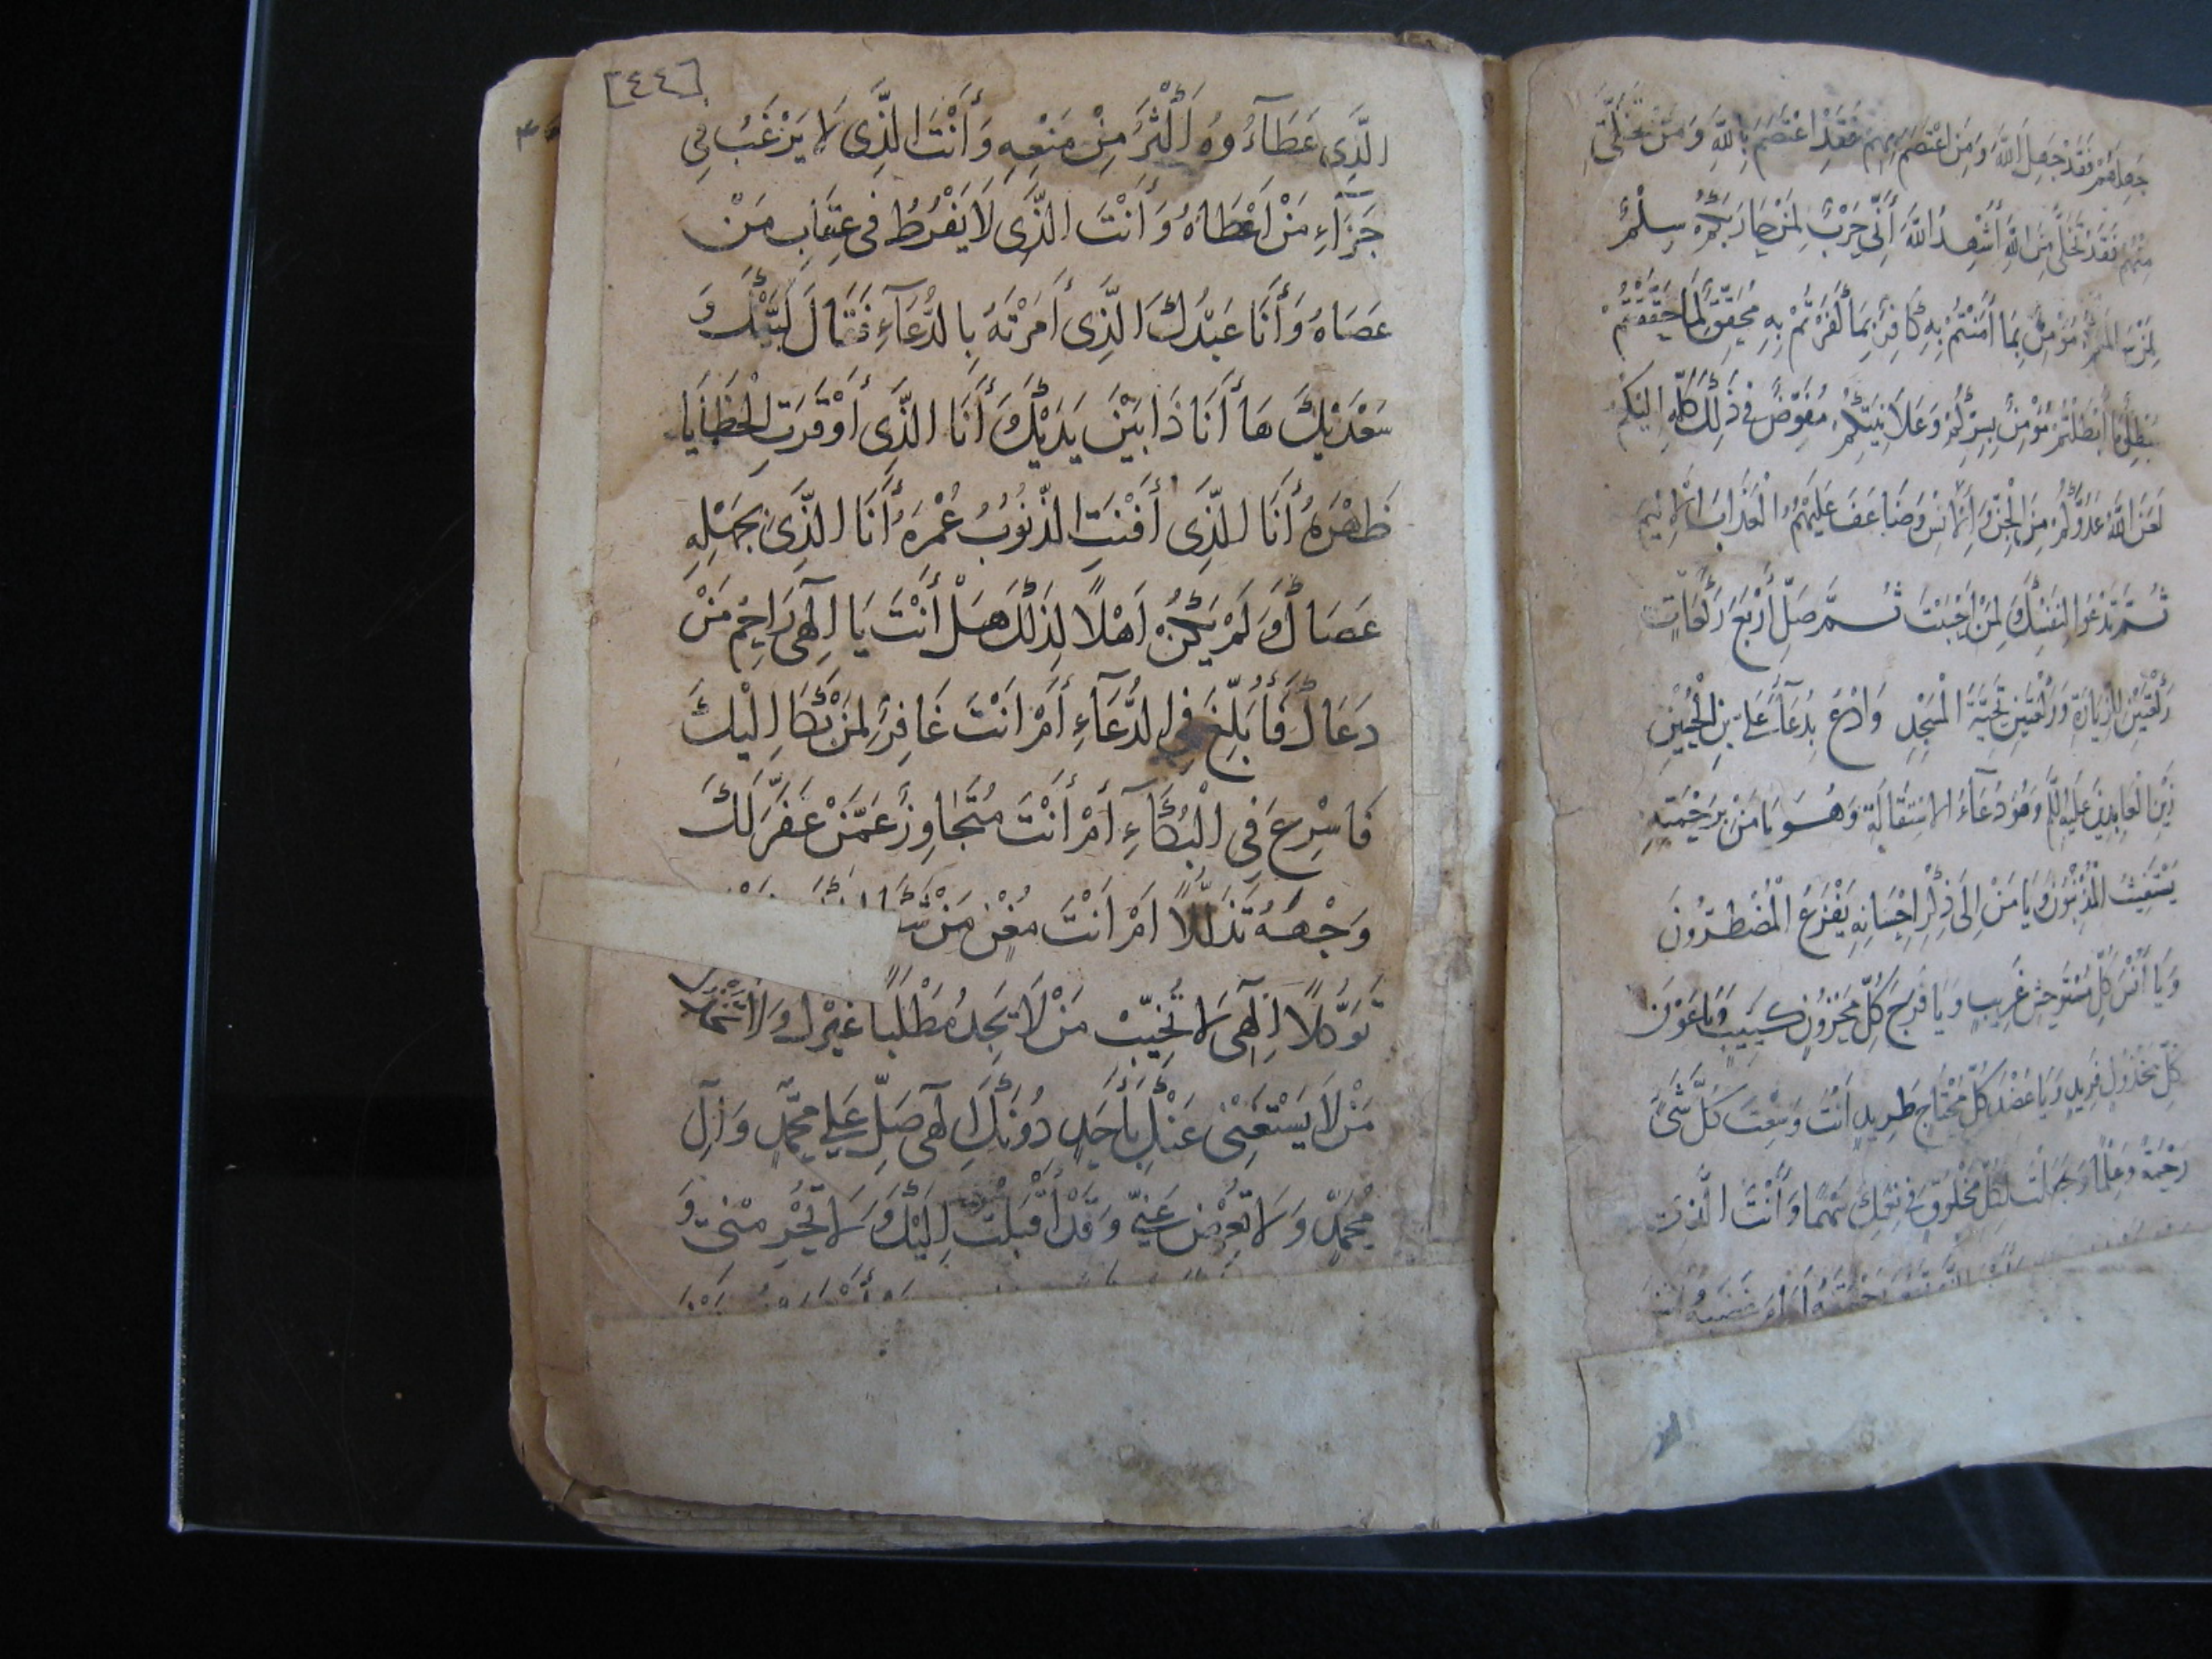 جَهِلَهُمْ فَقَدْ جَهِلَ اللّٰهَ وَمَنِ اعْتَصَمَ بِهِمْ فَقَدِ اعْتَصَمَ بِاللّٰهِ وَمَنْ تَخَلّٰى
مِنْهُمْ فَقَدْ تَخَلّٰى مِنَ اللّٰهِ أُشْهِدُ اللّٰهَ أَنِّي حَرْبٌ لِمَنْ حَارَبَكُمْ سِلْمٌ
لِمَنْ سَالَمَكُمْ مُؤْمِنٌ بِمَا أَمَنْتُمْ بِهِ كَافِرٌ بِمَا كَفَرْتُمْ بِهِ مُحَقِّقٌ لِمَا حَقَّقْتُمْ
مُبْطِلٌ لِمَا أَبْطَلْتُمْ مُؤْمِنٌ بِسِرِّكُمْ وَعَلَانِيَتِكُمْ مُفَوِّضٌ فِي ذٰلِكَ كُلِّهِ إِلَيْكُمْ
لَعَنَ اللّٰهُ عَدُوَّكُمْ مِنَ الْجِنِّ وَالْإِنْسِ وَضَاعَفَ عَلَيْهِمُ الْعَذَابَ الْأَلِيمَ
ثُمَّ تَدْعُوا لِنَفْسِكَ وَلِمَنْ أَحْبَبْتَ ثُمَّ صَلِّ أَرْبَعَ رَكَعَاتٍ
رَكْعَتَيْنِ لِلزِّيَارَةِ وَرَكْعَتَيْنِ تَحِيَّةَ الْمَسْجِدِ وَادْعُ بِدُعَاءِ عَلِيِّ بْنِ الْحُسَيْنِ
زَيْنِ الْعَابِدِينَ عَلَيْهِ السَّلَمُ وَهُوَ دُعَآءُ الِاسْتِقَالَةِ وَهُوَ يَا مَنْ بِرَحْمَتِهِ
يَسْتَغِيثُ الْمُذْنِبُونَ وَيَا مَنْ إِلَى ذِكْرِ إِحْسَانِهِ يَفْزَعُ الْمُضْطَرُّونَ
وَيَا أُنْسَ كُلِّ مُسْتَوْحِشٍ غَرِيبٍ وَيَا فَرَجَ كُلِّ مَحْزُونٍ كَئِيبٍ وَيَا عَوْنَ
كُلِّ مَخْذُولٍ فَرِيدٍ وَيَا عَضُدَ كُلِّ مُحْتَاجٍ طَرِيدٍ أَنْتَ وَسِعْتَ كُلَّ شَىْءٍ
رَحْمَةً وَعِلْمًا وَجَعَلْتَ لِكُلِّ مَخْلُوقٍ فِي نِعَمِكَ سَهْمًا وَأَنْتَ الَّذِي
[٤٤]
الَّذِي عَطَآءُوهُ أَكْثَرُ مِنْ مَنْعِهِ وَأَنْتَ الَّذِى لَا يَرْغَبُ فِي
جَزَآءِ مَنْ أَعْطَاهُ وَأَنْتَ الَّذِى لَا يَفْرُطُ فِى عِقَابِ مَنْ
عَصَاهُ وَأَنَا عَبْدُكَ الَّذِى أَمَرْتَهُ بِالدُّعَآءِ فَقَالَ لَبَّيْكَ وَ
سَعْدَيْكَ هَا أَنَا ذَا بَيْنَ يَدَيْكَ أَنَا الَّذِى أَوْقَرَتِ الْخَطَايَا
ظَهْرَهُ أَنَا الَّذِى أَفْنَتِ الذُّنُوبُ عُمْرَهُ أَنَا الَّذِى بِجَهْلِهِ
عَصَاكَ وَلَمْ يَكُنْ أَهْلًا لِذٰلِكَ هَلْ أَنْتَ يَا اِلٰهِى رَاحِمٌ مَنْ
دَعَاكَ فَأُبَلِّغَ فِي الدُّعَآءِ أَمْ أَنْتَ غَافِرٌ لِمَنْ بَكَا اِلَيْكَ
فَاسْرِعَ فِي الْبُكَآءِ أَمْ أَنْتَ مُتَجَاوِزٌ عَمَّنْ عَفَّرَ لَكَ
وَجْهَهُ تَذَلُّلًا أَمْ أَنْتَ مُغْنٍ مَنْ
تَوَكُّلًا اِلٰهِى لَا تُخَيِّبْ مَنْ لَا يَجِدُ مَطْلَبًا غَيْرَكَ وَلَا تَخْذُلْ
مَنْ لَا يَسْتَغْنِى عَنْكَ بِأَحَدٍ دُونَكَ اِلٰهِى صَلِّ عَلٰى مُحَمَّدٍ وَآلِ
مُحَمَّدٍ وَلَا تُعْرِضْ عَنِّى وَقَدْ أَقْبَلْتُ اِلَيْكَ وَلَا تَحْرِمْنِى وَ